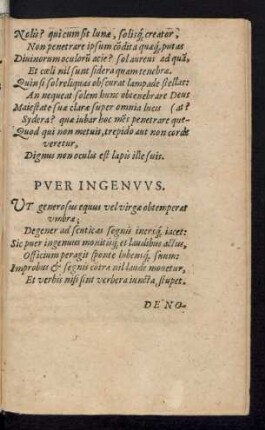 Nolit? qui cum sit lunæ, solisq́; creator,
Non penetrare ipsum cõdita quæq́, putas
Diuinorum oculorũ acie? sol aureus ad quã,
Et cœli nil sunt sidera quam tenebræ.
Quin si sol reliquas obscurat lampade stellas:
An nequeat solem hunc obtenebrare Deus
Maiestate suæ claræ super omnia lucis (at?
Sydera? quæ iubar hoc nõ penetrare que-
Quod qui non metuit, trepido aut non corde
veretur,
Dignus non oculis est lapis iste suis.
PVER INGENVVS.
VT generosus equus vel virgæ obtemperat
vmbræ;
Degener ad senticas segnis inersq́, iacet:
Sic puer ingenuus monitisq́; et laudibus actus,
Officium peragit sponte lubensq́, suum:
Improbus & segnis citra nil laude monetur,
Et verbis nisi sint verbera iuncta, stupet.
DENO-